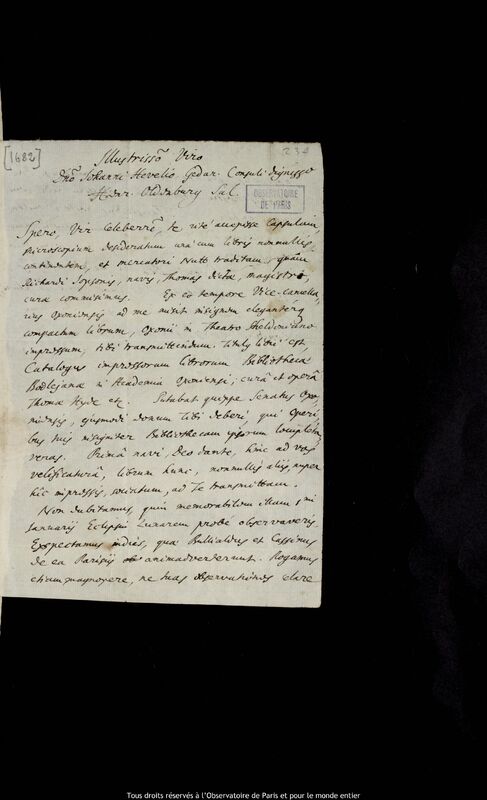 [1682]
239
Illustrissõ Viro
Dnõ Johanni Hevelio Gedan. Consuli dignissõ
Henr. Oldenburg Sal.
OBSERVATOIRE
DE PARIS
Spero, Vir Celeberrẽ, te ritè accepisse Capsulam,
Microscopium desideratum unà cum libris nonnullis
continentem, et mercatori Nutt traditam, quam
Richardi Jopsons, navis, Thomas dicta, magistri
cura commisimus. Ex eo tempore Vice-Cancella-
rius Oxoniensis ad me misit insignem eleganterq
compactum librum, Oxonii in Theatro Sheldoniano
impressum, tibi transmittendum. Titulus libri est
Catalogus impressorum librorum Bibliothecæ
Bodlejanæ in Academia Oxoniensi; curâ et operâ
Thomæ Hyde etc. Putabat quippe Senatus Oxo-
niensis, ejusmodi donum tibi deberi qui operi-
bus tuis insigniter Bibliothecam ipsorum locupleta-
veras. Primâ navi, Deo dante, hinc ad vos
velificaturâ, librum hunc, nonnullis aliis nuper
hîc impressis, sociatum, ad Te transmittam.
Non dubitamus, quin memorabilem illam 1 mi
Januarij Eclipsin Lunarem probè observaveris.
Expectamus indies, quæ Bullialdus et Cassinus
de ea Parisijs animadverterunt. Rogamus
etiam magnopere, ne tuas observationes claré
Tous droits réservés à l'Observatoire de Paris et pour le monde entier